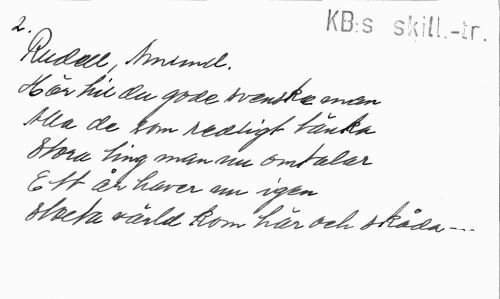 2.
KB:s skill.-tr.
Rudell, Amimd.
Hör hit du gode svenske man
Alla de som redligt tänka
Stora ting man nu omtalar
Ett år haver nu igen
Stolta värld kom här och skåda -..